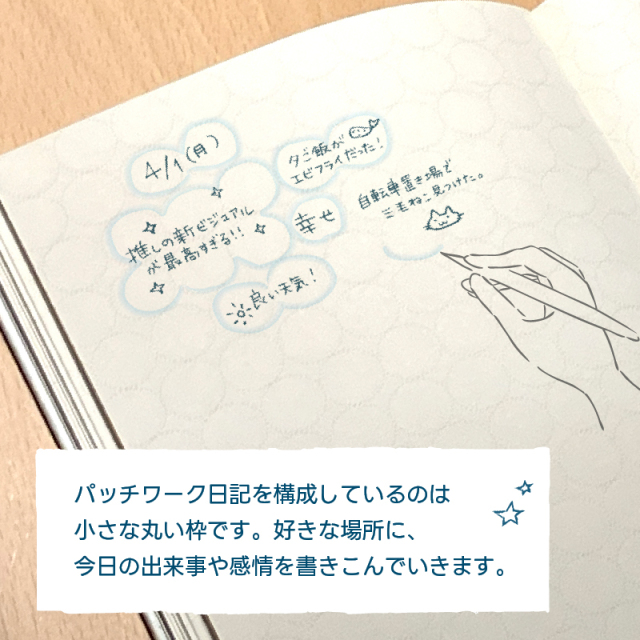 4/1(月)
夕ご飯が
エビフライだった!
推しの新ビジュアル
が最高すぎる!!
幸せ
自転車置き場で
三毛ねこ見つけた。
良い天気!
パッチワーク日記を構成しているのは
小さな丸い枠です。好きな場所に、
今日の出来事や感情を書きこんでいきます。